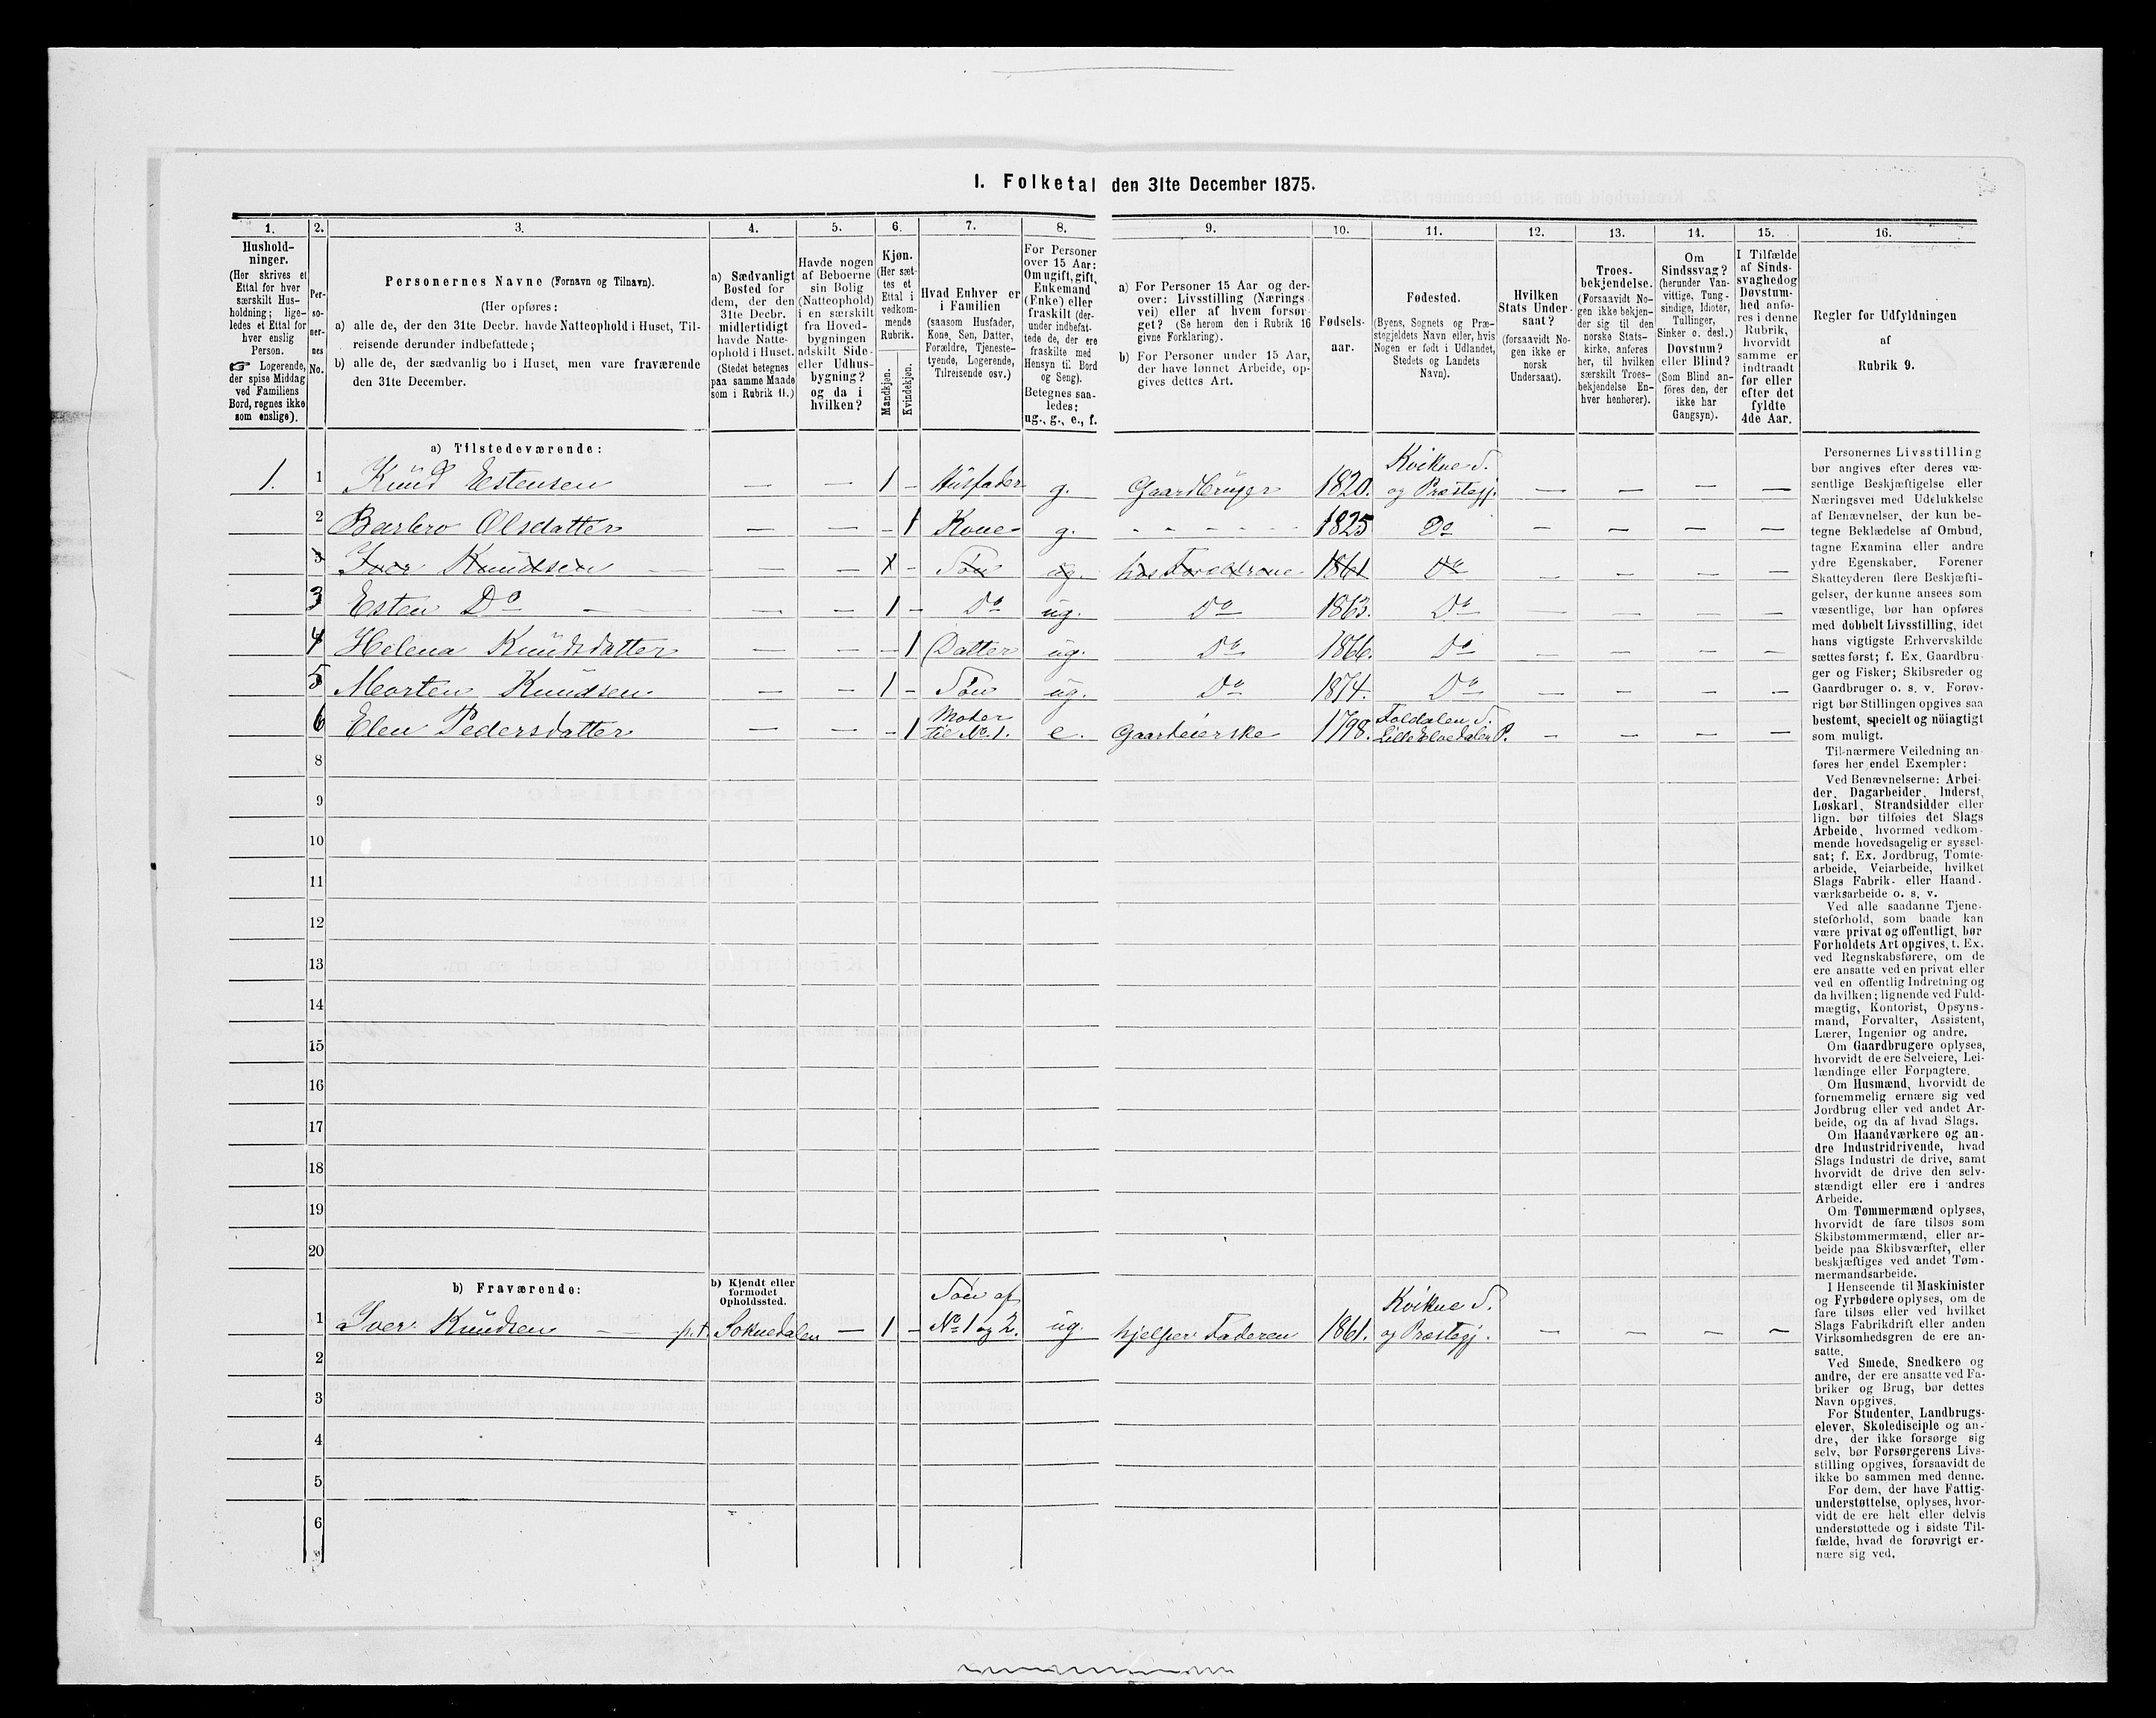 I. Folketal den 31te December 1875.
1. 2. 3. 4. 5. 6. 7. 8. 9. 10. 11. 12. 13. 14. 15. 16.
Hushold-
ninger.
(Her skrives et
Ettal for hver
særskilt Hus-
holdning; lige-
ledes et Ettal for
hver enslig
Person.
☞ Logerende,
der spise Middag
ved Familiens
Bord, regnes ikke
som enslige).
Per-
so-
ner-
nes
No.
Personernes Navne (Fornavn og Tilnavn).
(Her opføres:
a) alle de, der den 31te Decbr. havde Natteophold i Huset, Til-
reisende derunder indbefattede;
b) alle de, der sædvanlig bo i Huset, men vare fraværende
den 31te December.
a) Sædvanligt
Bosted for
dem, der den
31te Decbr.
midlertidigt
havde Natte-
ophold i Huset.
(Stedet betegnes
paa samme Maade
som i Rubrik 11.)
Havde nogen
af Beboerne
sin Bolig
(Natteophold)
i en særskilt
fra Hoved-
bygningen
adskilt Side-
eller Udhus-
bygning?
og da i
hvilken?
Kjøn.
(Her sæt-
tes et
Ettal i
vedkom-
mende
Rubrik.
Mandkjøn.
Kvindekjøn.
Hvad Enhver er
i Familien
(saasom Husfader,
Kone, Søn, Datter,
Forældre, Tjeneste-
tyende, Logerende,
Tilreisende osv.)
For Personer
over 15 Aar:
Om ugift, gift,
Enkemand
(Enke) eller
fraskilt (der-
under indbefat-
tede de, der ere
fraskilte med
Hensyn til Bord
og Seng).
Betegnes saa-
ledes:
ug., g., e., f.
a) For Personer 15 Aar og der-
over: Livsstilling (Nærings-
vei) eller af hvem forsør-
get? (Se herom den i Rubrik 16
givne Forklaring).
b) For Personer under 15 Aar,
der have lønnet Arbeide, op-
gives dettes Art.
Fødsels-
aar.
Fødested.
(Byens, Sognets og Præ-
stegjeldets Navn eller, hvis
Nogen er født i Udlandet,
Stedets og Landets
Navn).
Hvilken
Stats Under-
saat?
(forsaavidt No-
gen ikke er
norsk
Undersaat).
Troes-
bekjendelse.
(Forsaavidt No-
gen ikke bekjen-
der sig til den
norske Stats-
kirke, anføres
her, til hvilken
særskilt Troes-
bekjendelse En-
hver henhører).
Om
Sindssvag?
(herunder Van-
vittige, Tung-
sindige, Idioter,
Tullinger,
Sinker o. desl.)
Døvstum?
eller Blind?
(Som Blind an-
föres den, der
ikke har
Gangsyn).
I Tilfælde
af Sinds-
svaghed og
Døvstum-
hed anfø-
res i denne
Rubrik,
hvorvidt
samme er
indtraadt
før eller
efter det
fyldte
4de Aar.
Regler for Udfyldningen
af
Rubrik 9.
a) Tilstedeværende:
1. 1 Knud Estensen — — 1 - Husfader g. Gaardbruger 1820. Kvikne S. og Præstegj. — — — —
2 Barbro Olsdatter — — - 1 Kone g. - - - - - - 1825 Do — — — —
3 Iver Knudsen X - Søn ug. hos Forældrene 1861 Do — — — —
3 Esten Do — — 1 - Do ug. Do 1863. Do — — — —
4 Helena Knudsdatter — — - 1 Datter ug. Do 1866. Do — — — —
5 Morten Knudsen — — 1 - Søn ug. Do 1874. Do — — — —
6 Elen Pedersdatter — — - 1 Moder til No. 1. e. Gaardeierske 1798. Foldalen S. Lille Elvedalen P. — — — —
8
9
10
11
12
13
14
15
16
17
18
19
20
b) Fraværende:
b) Kjendt eller
formodet
Opholdssted.
1 Iver Knudsen p.t. Soknedalen — 1 - Søn af No 1 og 2. ug. hjelper Faderen 1861. Kvikne S. og Præstegj. — — — —
2
3
4
5
6
Personernes Livsstilling
bør angives efter deres væ-
sentlige Beskjæftigelse eller
Næringsvei med Udelukkelse
af Benævnelser, der kun be-
tegne Beklædelse af Ombud,
tagne Examina eller andre
ydre Egenskaber. Forener
Skatteyderen flere Beskjæfti-
gelser, der kunne ansees som
væsentlige, bør han opføres
med dobbelt Livsstilling, idet
hans vigtigste Erhvervskilde
sættes først; f. Ex. Gaardbru-
ger og Fisker; Skibsreder og
Gaardbruger o. s. v. Forøv-
rigt bør Stillingen opgives saa
bestemt, specielt og nöiagtigt
som muligt.
Til nærmere Veiledning an-
føres her endel Exempler:
Ved Benævnelserne: Arbei-
der, Dagarbeider, Inderst,
Løskarl, Strandsidder eller
lign. bør tilføies det Slags
Arbeide, hvormed vedkom-
mende hovedsagelig er syssel-
sat; f. Ex. Jordbrug, Tomte-
arbeide, Veiarbeide, hvilket
Slags Fabrik- eller Haand-
værksarbeide o. s. v.
Ved alle saadanne Tjene-
steforhold, som baade kan
være privat og offentligt, bør
Forholdets Art opgives, t. Ex.
ved Regnskabsførere, om de
ere ansatte ved en privat eller
ved en offentlig Indretning og
da hvilken; lignende ved Fuld-
mægtig, Kontorist, Opsyns-
mand, Forvalter, Assistent,
Lærer, Ingeniør og andre.
Om Gaardbrugere oplyses,
hvorvidt de ere Selveiere, Lei-
lændinge eller Forpagtere.
Om Husmænd, hvorvidt de
fornemmelig ernære sig ved
Jordbrug eller ved andet Ar-
beide, og da af hvad Slags.
Om Haandværkere og an-
dre Industridrivende, hvad
Slags Industri de drive, samt
hvorvidt de drive den selv-
stændigt eller ere i andres
Arbeide.
Om Tømmermænd oplyses,
hvorvidt de fare tilsøs som
Skibstømmermænd, eller ar-
beide paa Skibsværfter, eller
beskjæftiges ved andet Tøm-
mermandsarbeide.
I Henseende til Maskinister
og Fyrbødere oplyses, om de
fare tilsøs eller ved hvilket
Slags Fabrikdrift eller anden
Virksomhedsgren de ere an-
satte.
Ved Smede, Snedkere og
andre, der ere ansatte ved Fa-
briker og Brug, bør dettes
Navn opgives.
For Studenter, Landbrugs-
elever, Skoledisciple og an-
dre, der ikke forsørge sig
selv, bør Forsørgerens Livs-
stilling opgives, forsaavidt de
ikke bo sammen med denne.
For dem, der have Fattig-
understøttelse, oplyses, hvor-
vidt de ere helt eller delvis
understøttede og i sidste Til-
fælde, hvad de forøvrigt er-
nære sig ved.